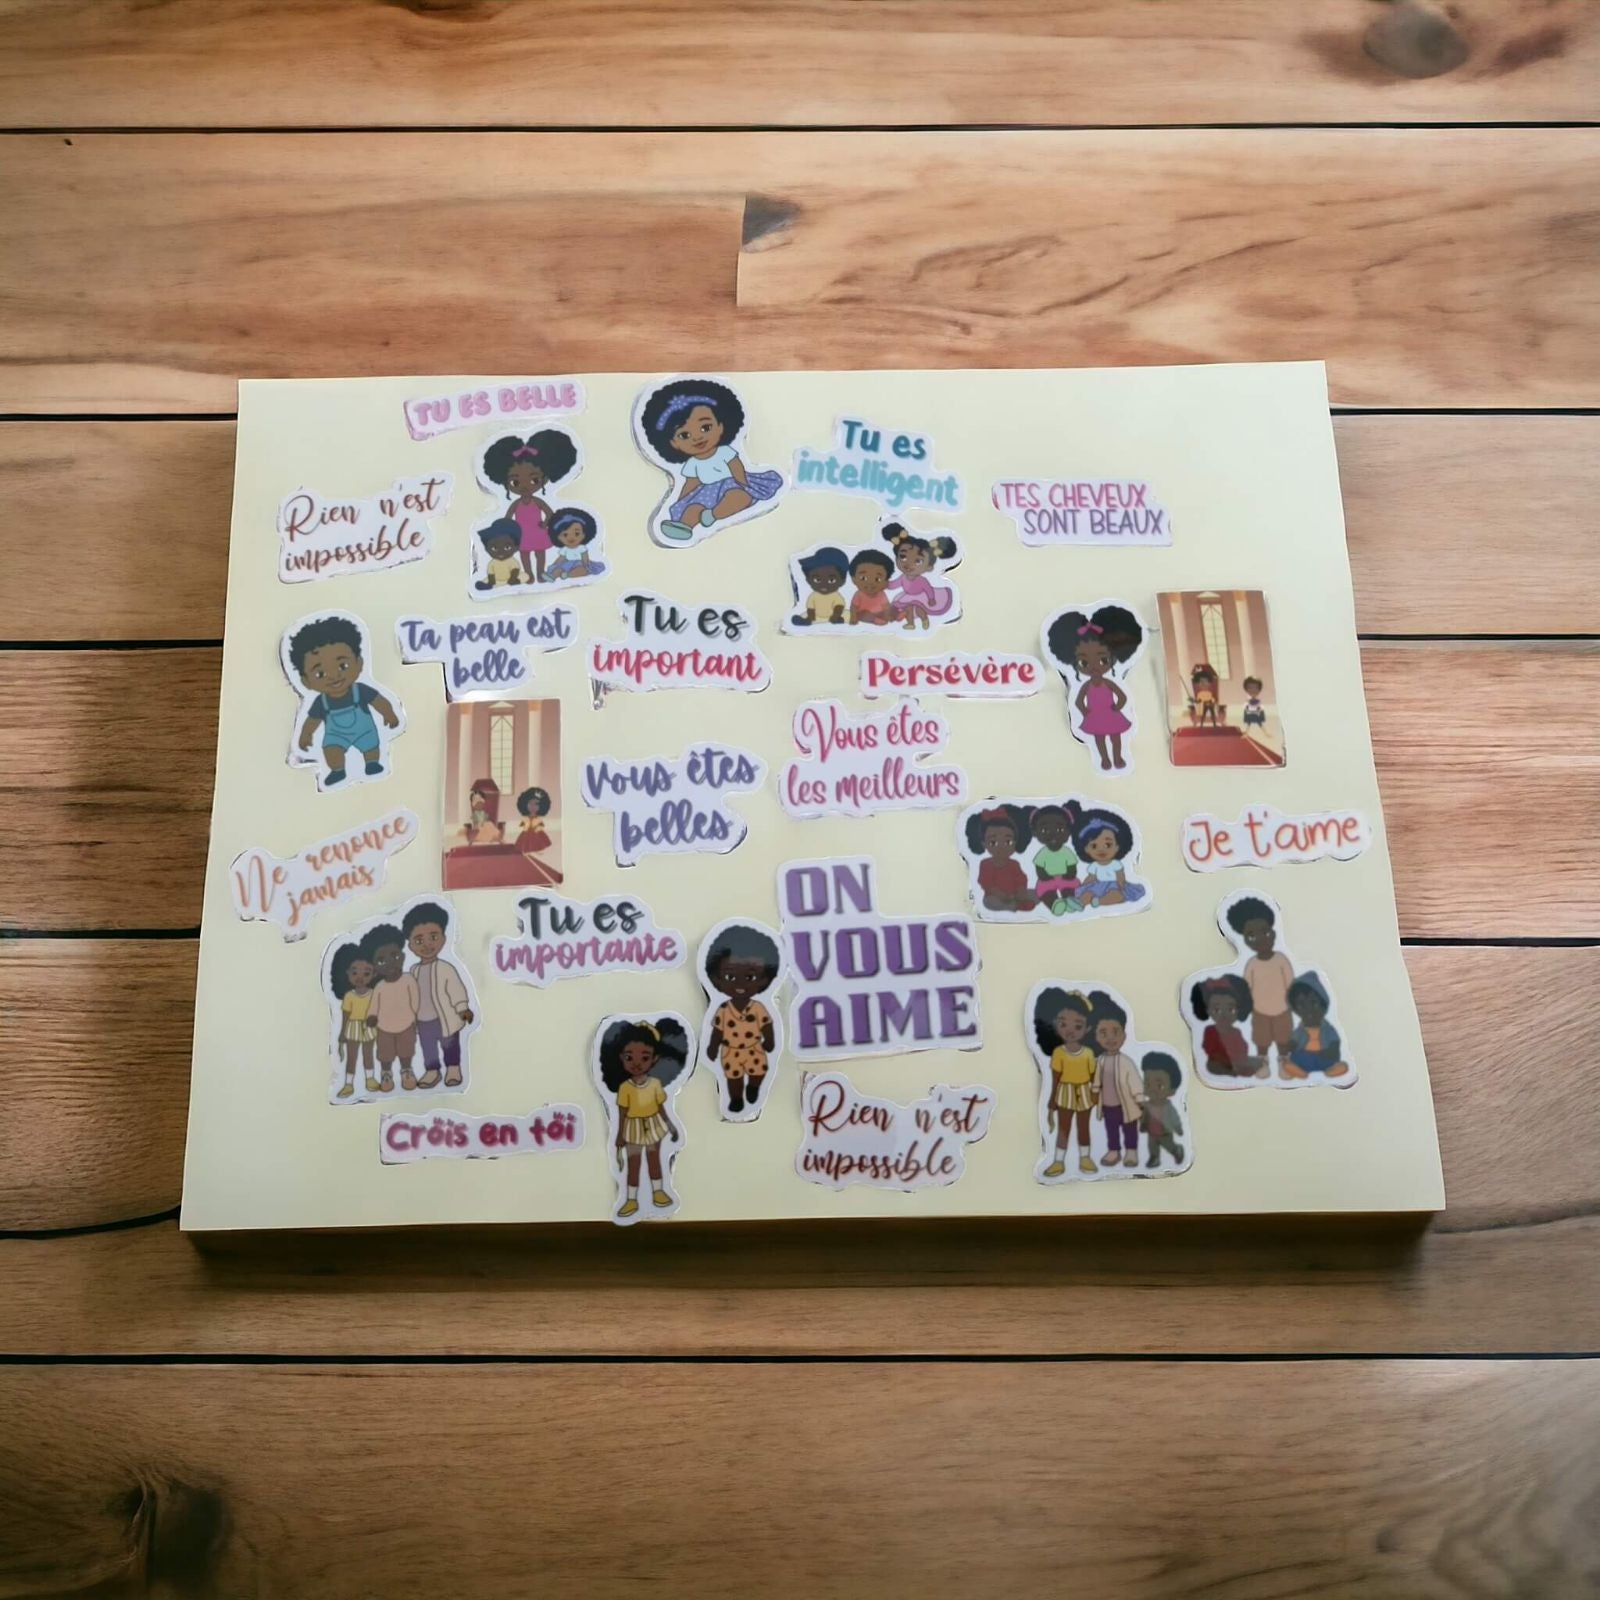 TU ES BELLE
Tu es
intelligent
Rien n'est
impossible
TES CHEVEUX
SONT BEAUX
Ta peau est
belle
Tu es
important
Persévère
Vous êtes
les meilleurs
Vous êtes
belles
Ne renonce
jamais
Je t'aime
Tu es
importante
ON
VOUS
AIME
Crois en toi
Rien n'est
impossible